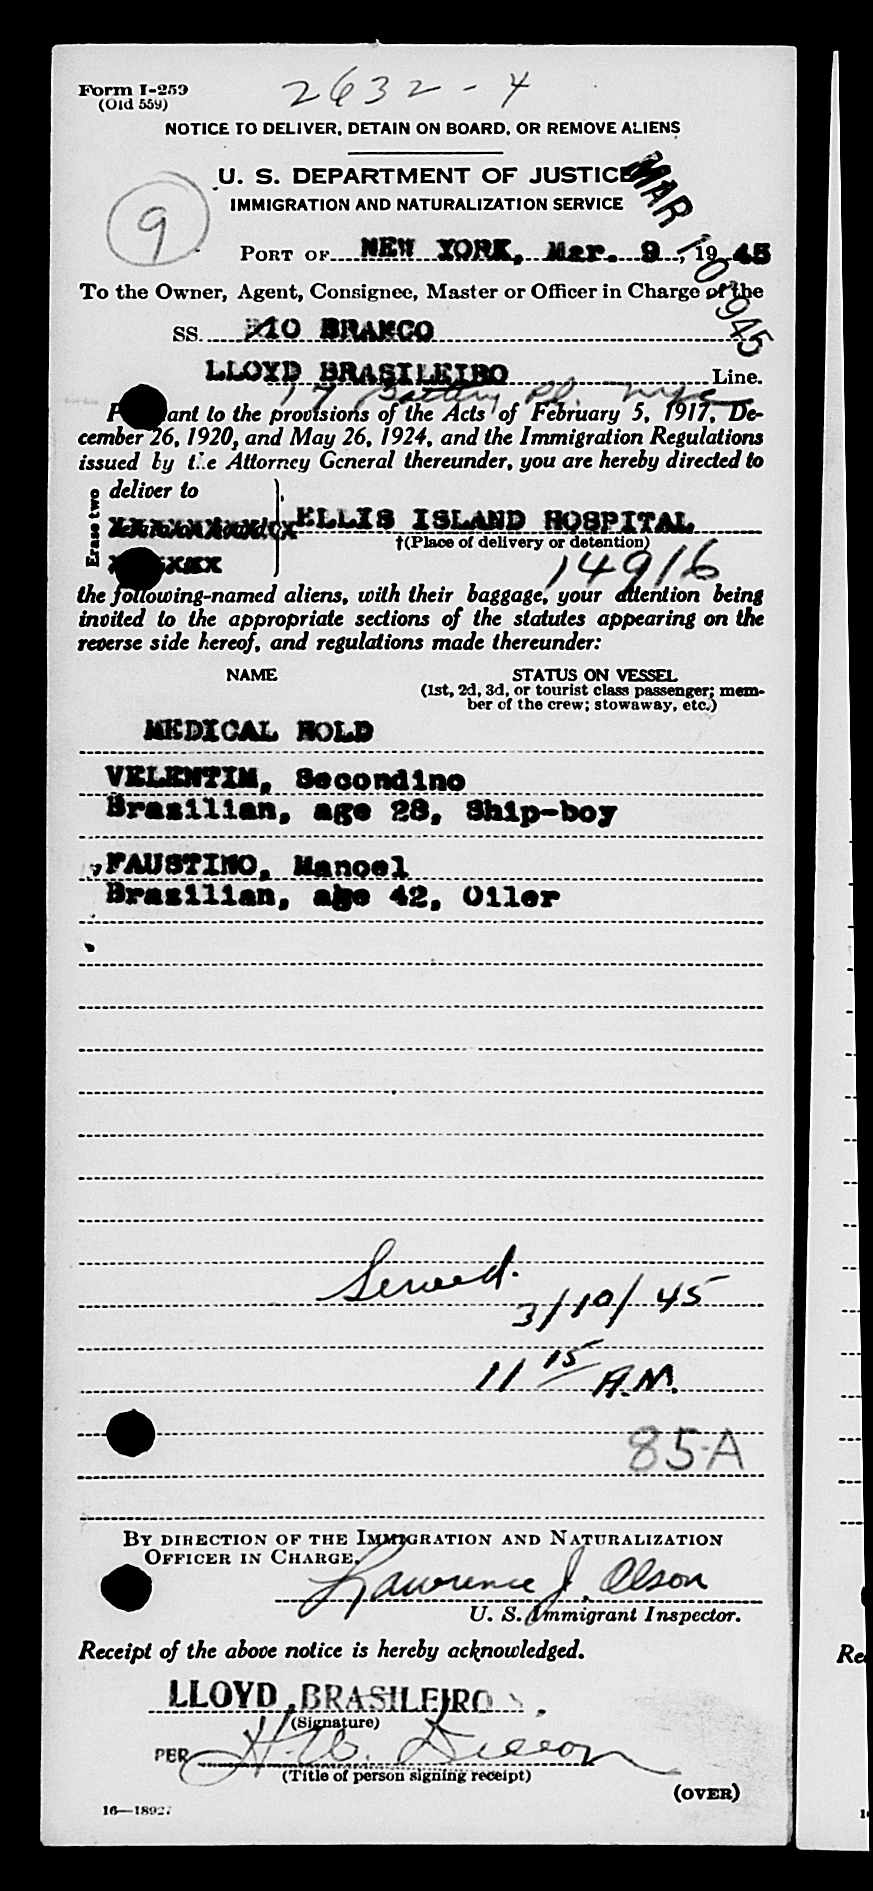 Form I-259
(Old 559)
2632-4
NOTICE TO DELIVER, DETAIN ON BOARD, OR REMOVE ALIENS
U. S. DEPARTMENT OF JUSTICE
IMMIGRATION AND NATURALIZATION SERVICE
MAR 10 1945
9
PORT OF NEW YORK, Mar. 9, 1945
To the Owner, Agent, Consignee, Master or Officer in Charge of the
SS. RIO BRANCO
LLOYD BRASILEIRO Line.
17 Battery Pl. nyc
ant to the provisions of the Acts of February 5, 1917, De-
cember 26, 1920, and May 26, 1924, and the Immigration Regulations
issued by the Attorney General thereunder, you are hereby directed to
Erase two
deliver to
ELLIS ISLAND HOSPITAL
†(Place of delivery or detention)
14916
the following-named aliens, with their baggage, your attention being
invited to the appropriate sections of the statutes appearing on the
reverse side hereof, and regulations made thereunder:
NAME STATUS ON VESSEL
(1st, 2d, 3d, or tourist class passenger; mem-
ber of the crew; stowaway, etc.)
MEDICAL HOLD
VELENTIM, Secondino
Brazilian, age 28, Ship-boy
FAUSTINO, Manoel
Brazilian, age 42, Oiler
Served.
3/10/45
11 15 A.M.
85-A
BY DIRECTION OF THE IMMIGRATION AND NATURALIZATION
OFFICER IN CHARGE.
Lawrence J. Olson
U. S. Immigrant Inspector.
Receipt of the above notice is hereby acknowledged.
LLOYD BRASILEIRO
(Signature)
PER
(Title of person signing receipt)
(OVER)
16—18927
Re